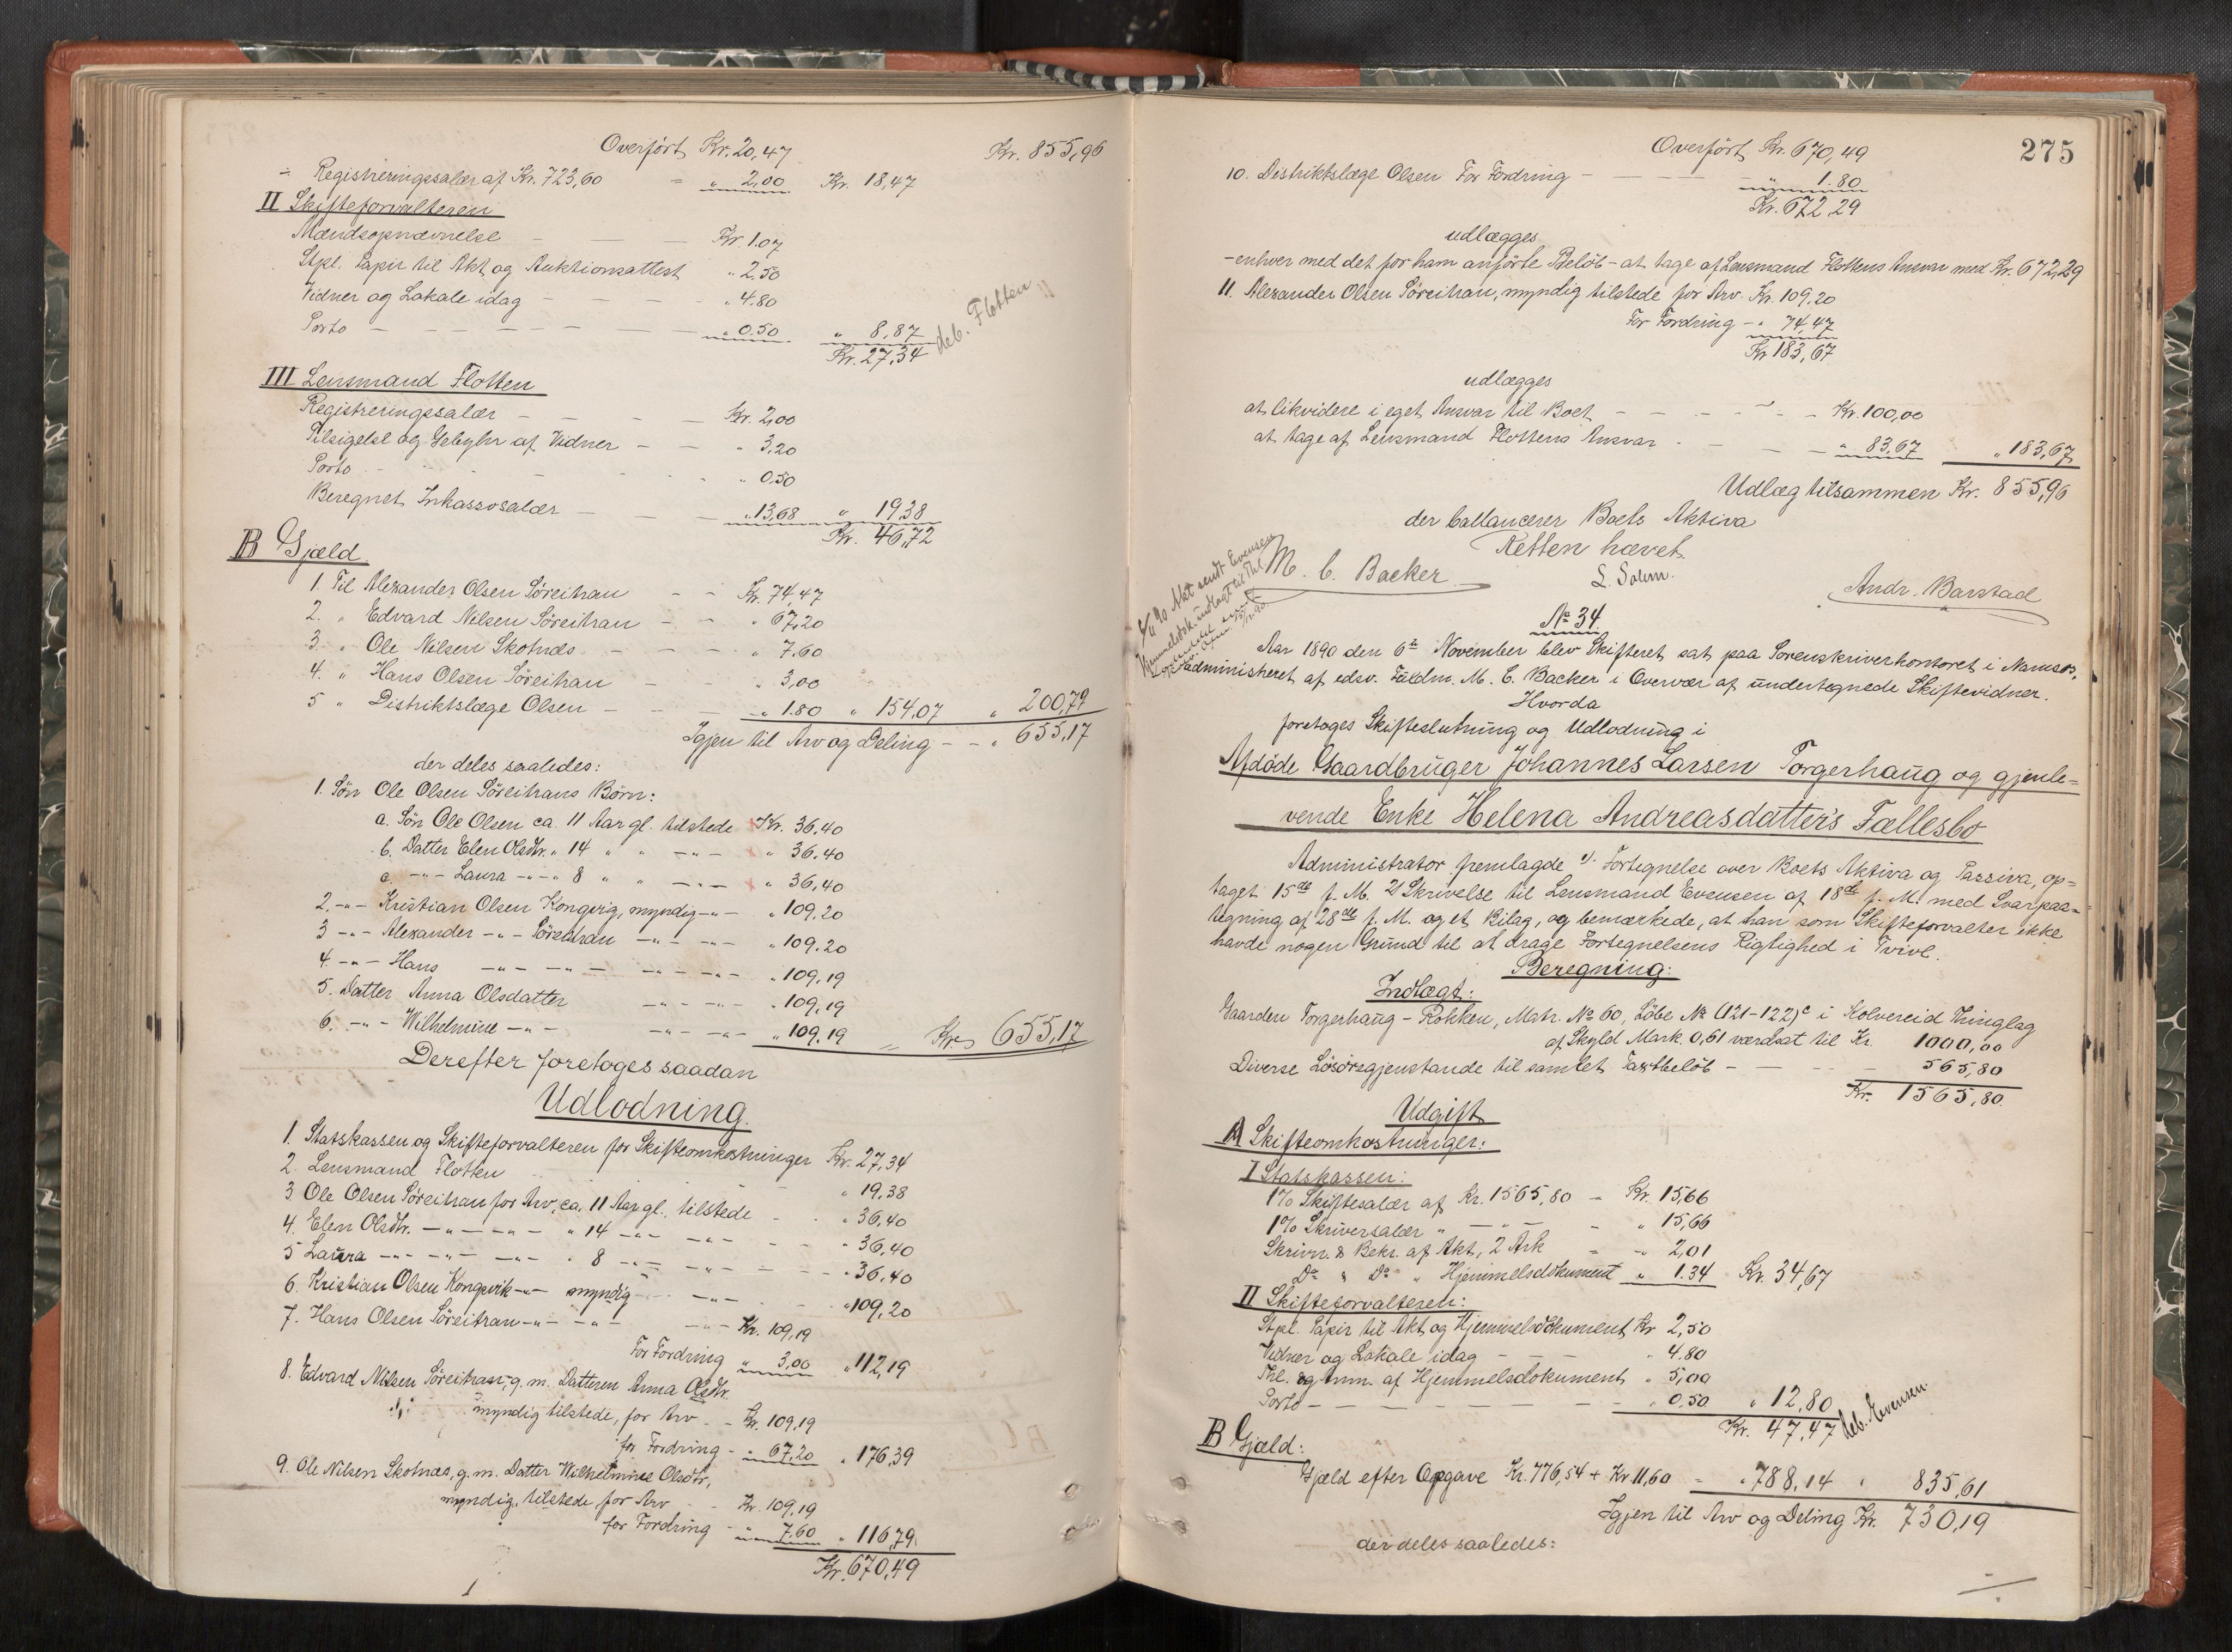 Overført Kr. 20,47 Kr. 855,96
" Registreringssalær af Kr. 723,60 = " 2,00 Kr. 18,47
II Skifteforvalteren
Mændsopnævnelse — — — Kr 1.07
Stpl. Papir til Akt og Auktionsattest " 2.50
Vidner og Lokale idag — — — " 4.80
Porto — — — — — " 0.50 " 8,87
Kr. 27,34 deb. Flotten
III Lensmand Flotten
Registreringssalær — — — Kr. 2,00
Tilsigelse og Gebyhr af Vidner — — " 3,20
Porto " 0,50
Beregnet Inkassosalær — — — " 13,68 " 19,38
Kr. 46,72
B Gjæld
1. Til Alexander Olsen Söreitran — — Kr. 74,47
2. " Edvard Nilsen Söreitran — — " 67,20
3. " Ole Nilsen Skotnæs — — — " 7.60
4. " Hans Olsen Söreitran — — " 3,00
5 " Distriktslæge Olsen — — — " 1.80 " 154,07 " 200,79
Igjen til Arv og Deling — — " 655,17
der deles saaledes:
1. Søn Ole Olsen Söreitrans Børn:
a. Søn Ole Olsen ca. 11 Aar gl. tilstede Kr. 36,40
b. Datter Elen Olsdtr. " 14 " " —"— " 36,40
c. —"— Laura —"— " 8 " " —"— " 36,40
2. —"— Kristian Olsen Kongvig, myndig —"— " 109,20
3 —"— Alexander —"— Söreitran —"— —"— " 109.20
4 —"— Hans —"— —"— —"— —"— " 109,19
5. Datter Anna Olsdatter —"— —"— " 109,19
6. —"— Wilhelmine —"— —"— —"— " 109,19 = Kr. 655,17
Derefter foretoges saadan
Udlodning.
1. Statskassen og Skifteforvalteren for Skifteomkostninger Kr. 27,34
2. Lensmand Flotten " 19,38
3 Ole Olsen Söreitran for Arv, ca. 11 Aar gl. tilstede — " 36,40
4. Elen Olsdtr. —"— —"— " 14 —"— —"— " 36,40
5 Laura —"— —"— —"— " 8 —"— —"— " 36,40
6. Kristian Olsen Kongsvik —"— myndig —"— " 109,20
7. Hans Olsen Söreitran —"— —"— —"— Kr. 109,19
For Fordring " 3,00 " 112,19
8. Edvard Nilsen Söreitran, g. m. Datteren Anna Olsdtr.
myndig tilstede, for Arv — Kr. 109,19
for Fordring — " 67,20 " 176,39
9. Ole Nilsen Skotnæs, g. m. Datter Wilhelmine Olsdtr,
myndig, tilstede for Arv — Kr. 109,19
for Fordring — " 7.60 " 116,79.
Kr. 670,49
275
Overført Kr. 670,49
10. Distriktslæge Olsen For Fordring — — — " 1.80
Kr. 672,29
udlægges
- enhver med det for ham anførte Beløb - at tage af Lensmand Flottens Ansvar med Kr. 672,29
11. Alexander Olsen Söreitran, myndig tilstede for Arv. Kr. 109,20
For Fordring — " 74,47
Kr 183,67
udlægges
at likvidere i eget Ansvar til Boet — — — Kr. 100,00
at tage af Lensmand Flottens Ansvar — — " 83,67 " 183,67
Udlæg tilsammen Kr. 855,96
der ballancerer Boets Aktiva
Retten hævet.
M. C. Backer L. Solem. Andr. Barstad
Akt sendt Evensen
Hjemmelsdok. indlagt til Thl.
No 34.
Aar 1890 den 6te November blev Skifteret sat paa Sorenskriverkontoret i Namsos,
administreret af edsv. Fuldm. M. C. Backer i Overvær af undertegnede Skiftevidner.
Hvorda
foretoges Skifteslutning og Udlodning i
Afdöde Gaardbruger Johannes Larsen Torgerhaug og gjenle=
vende Enke Helena Andreasdatter's Fællesbo
Administrator fremlagde 1/. Fortegnelse over Boets Aktiva og Passiva, op=
taget 15de f. M. 2/ Skrivelse til Lensmand Evensen af 18de f. M. med Svarpaa=
tegning af 28de f. M. og et Bilag, og bemærkede, at han som Skifteforvalter ikke
havde nogen Grund til at drage Fortegnelsens Rigtighed i Tvivl.
Beregning:
Indlægt:
Gaarden Torgerhaug - Rokken, Matr. No 60, Løbe No (121-122)c i Kolvereid Thinglag
af Skyld Mark. 0,61 værdsat til Kr. 1000,00
Diverse Løsøregjenstande til samlet Taxtbeløb — — — 565,80
Kr. 1565,80.
Udgift
A Skifteomkostninger:
I Statskassen:
1% Skiftesalær af Kr. 1565,80 = Kr. 15,66
1% Skriversalær " —"— - " 15,66
Skrivn. & Bekr. af Akt, 2 Ark - " 2,01
Do & Do " Hjemmelsdokument " 1.34 Kr. 34,67
II Skifteforvalteren:
Stpl. Papir til Akt og Hjemmelsdokument Kr 2,50
Vidner og Lokale idag — — — " 4.80
Thl. og Anm. af Hjemmelsdokument " 5,00
Porto — — — — — " 0,50 " 12,80
Kr. 47,47 deb. Evensen.
B Gjæld:
Gjæld efter Opgave Kr. 776,54 + Kr 11,60 = " 788,14 " 835,61
Igjen til Arv og Deling Kr. 730,19
der deles saaledes: